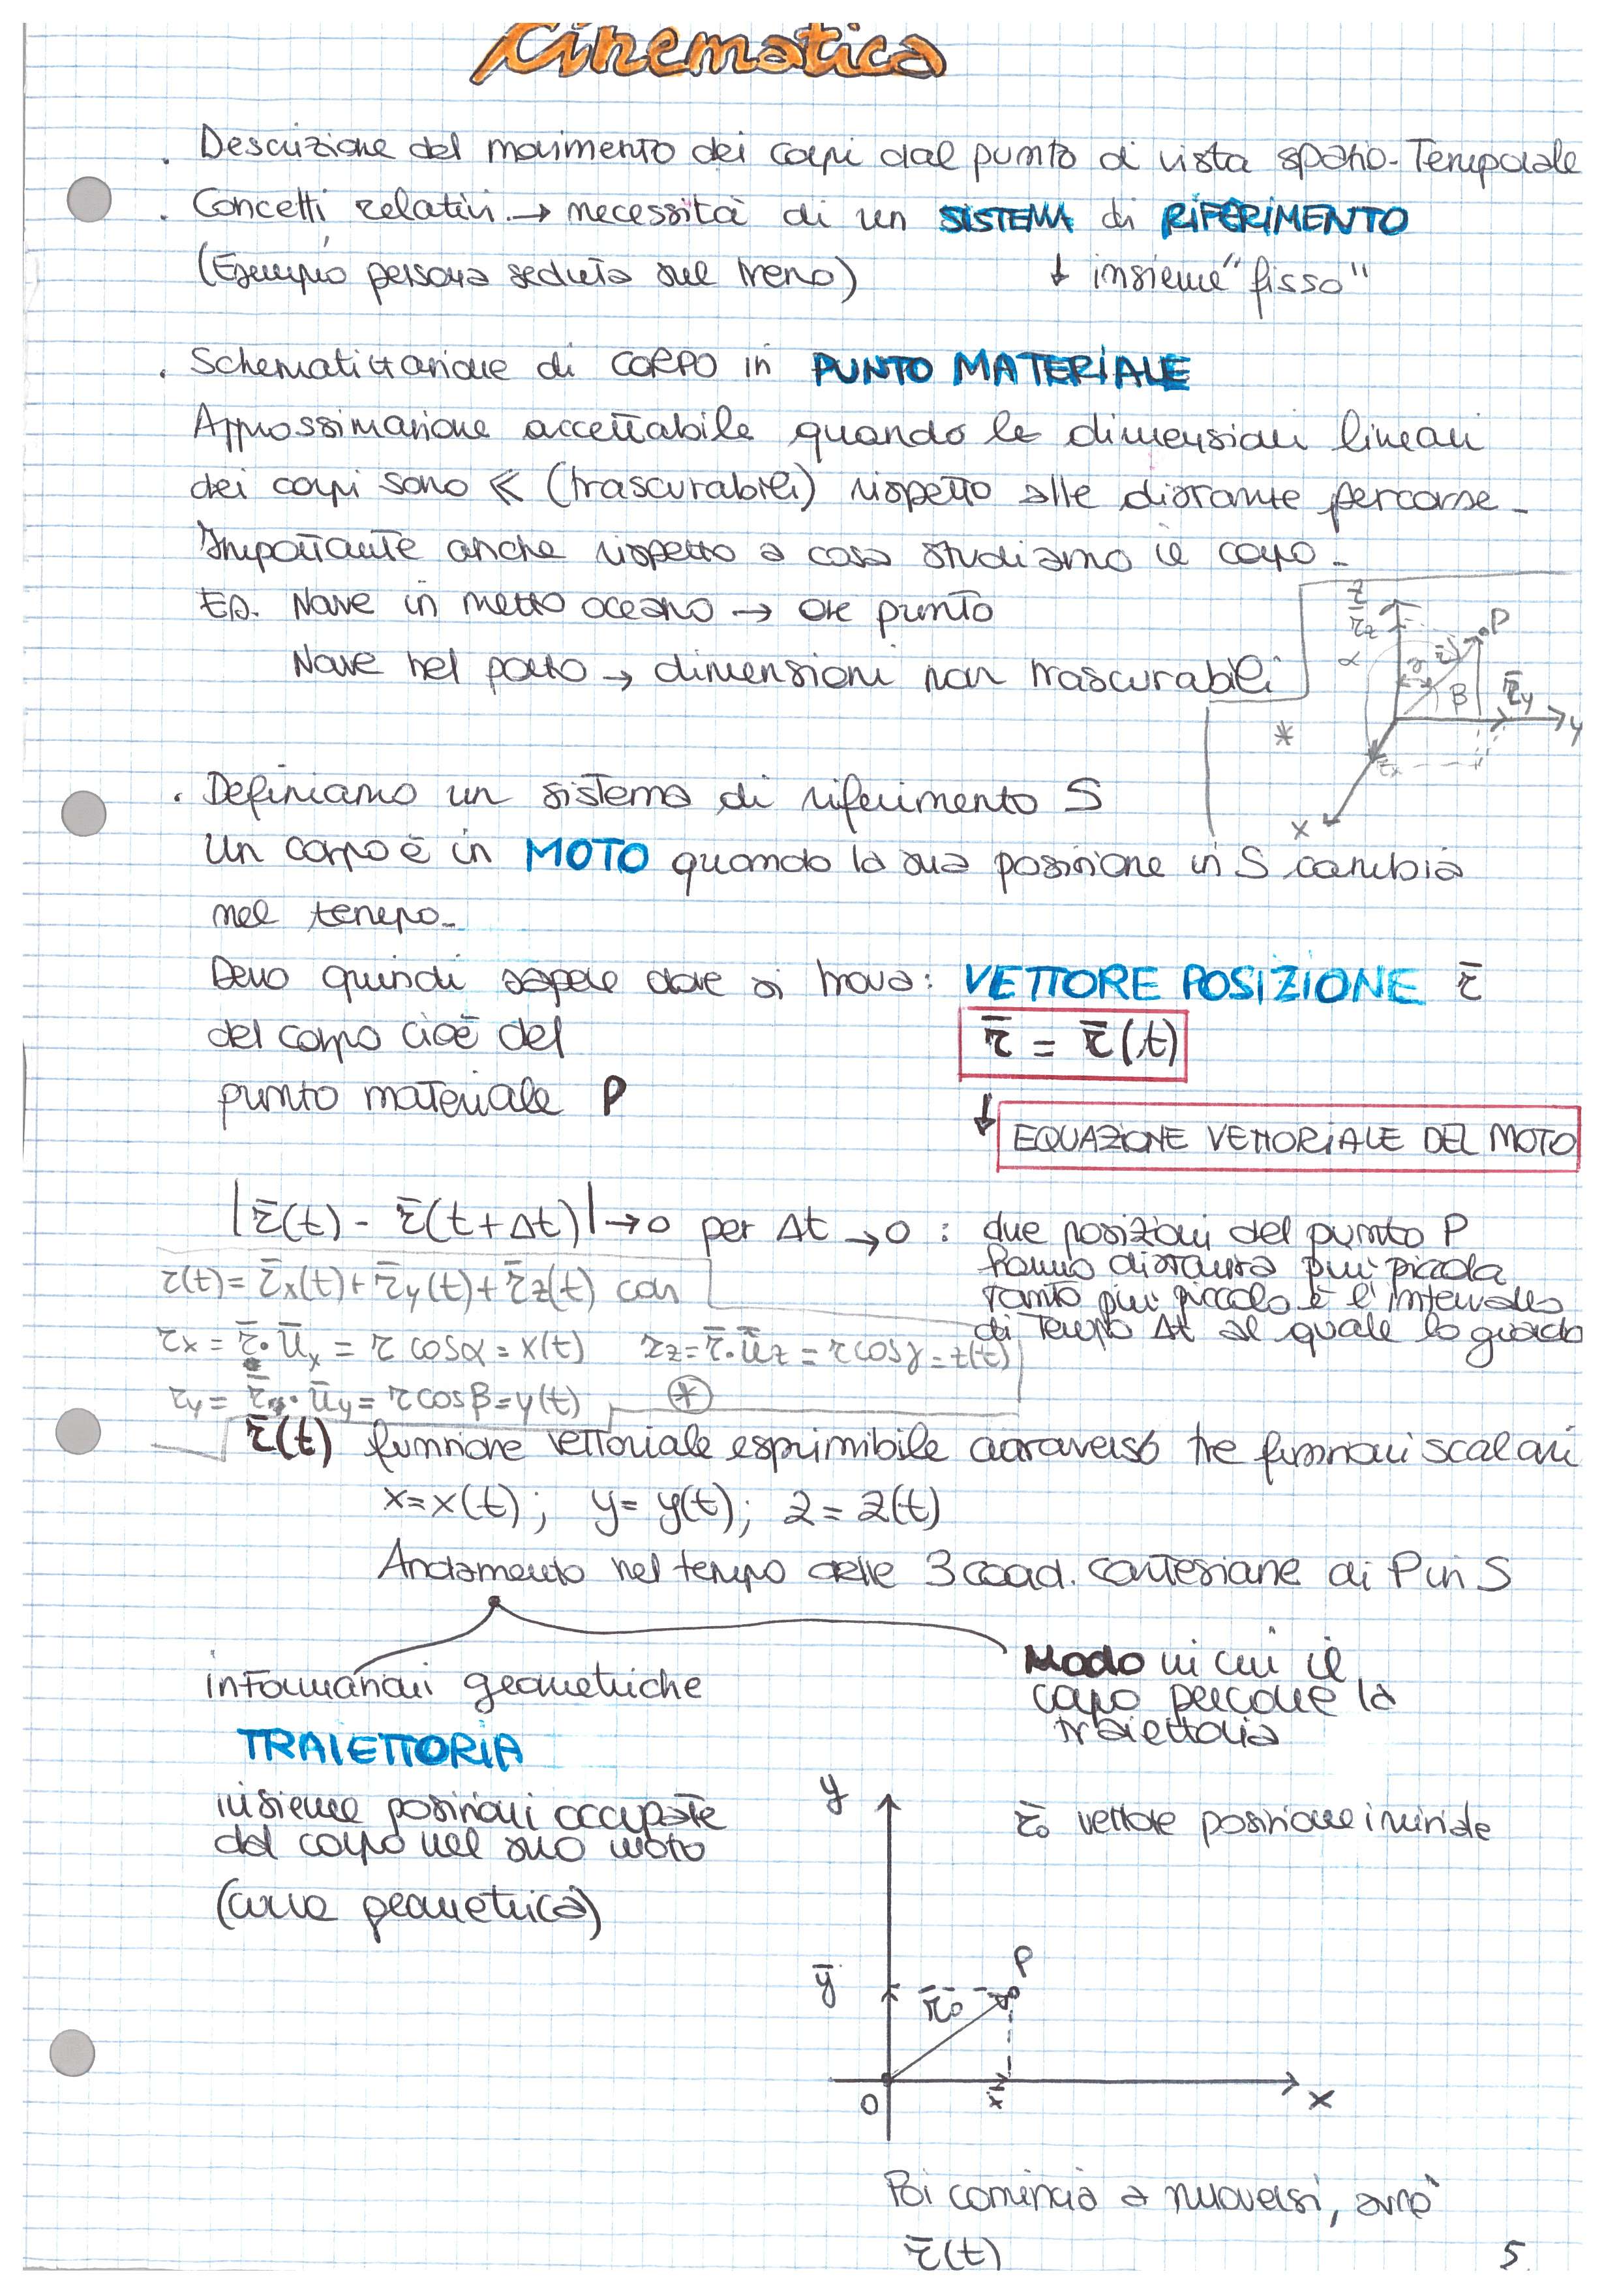 Cinematica
. Descrizione del movimento dei corpi dal punto di vista spazio-Temporale
. Concetti relativi → necessità di un SISTEMA di RIFERIMENTO
(Esempio persona seduta sul treno) ↓ insieme "fisso"
. Schematizzazione di CORPO in PUNTO MATERIALE
Approssimazione accettabile quando le dimensioni lineari
dei corpi sono << (trascurabili) rispetto alle distanze percorse -
Importante anche rispetto a cosa studiamo il corpo -
Es. Nave in mezzo oceano → ok punto
Nave nel porto → dimensioni non trascurabili
z
r̄z
P
α
r̄
γ
β
r̄y
y
*
rx
x
. Definiamo un sistema di riferimento S
Un corpo è in MOTO quando la sua posizione in S cambia
nel tempo -
Devo quindi sapere dove si trova: VETTORE POSIZIONE r̄
del corpo cioè del r̄ = r̄(t)
punto materiale P
↓ EQUAZIONE VETTORIALE DEL MOTO
|r̄(t) - r̄(t+Δt)| → 0 per Δt → 0 : due posizioni del punto P
hanno distanza più piccola
r(t) = r̄x(t) + r̄y(t) + r̄z(t) con
tanto più piccolo è l'intervallo
di Tempo Δt al quale lo guardo
rx = r̄ · ūx = r cosα = x(t) rz = r̄ · ūz = r cosγ = z(t)
ry = r̄ · ūy = r cosβ = y(t) *
r̄(t) funzione vettoriale esprimibile attraverso tre funzioni scalari
x = x(t) ; y = y(t) ; z = z(t)
Andamento nel tempo delle 3 coord. cartesiane di P in S
informazioni geometriche
Modo in cui il
corpo percorre la
traiettoria
TRAIETTORIA
insieme posizioni occupate
dal corpo nel suo moto
(curva geometrica)
y
r̄o vettore posizione iniziale
P
ȳ
r̄o
O
x̄
x
Poi comincia a muoversi, avrò
r̄(t)
5